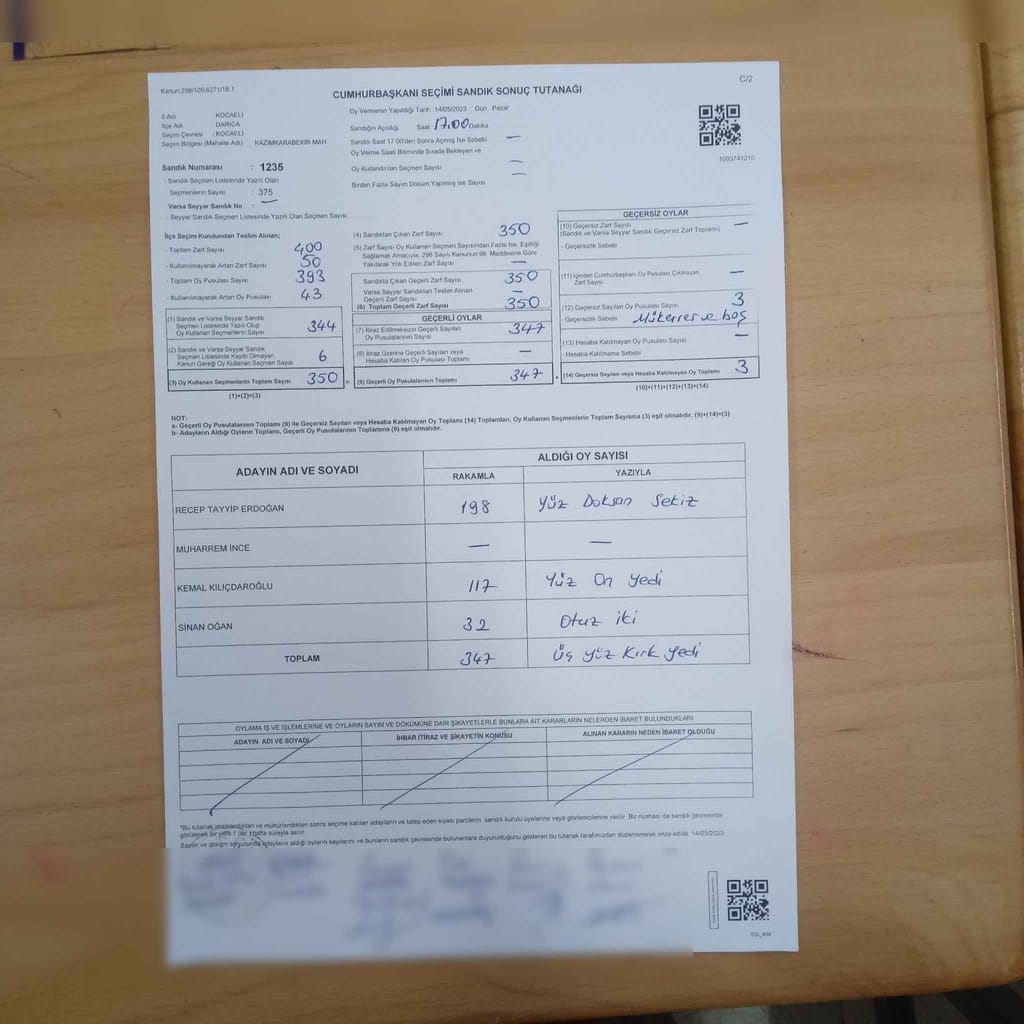 Kanun:298/105;6271/18-1
C/2
CUMHURBAŞKANI SEÇİMİ SANDIK SONUÇ TUTANAĞI
İl Adı : KOCAELİ
İlçe Adı : DARICA
Seçim Çevresi : KOCAELİ
Seçim Bölgesi (Mahalle Adı) KAZIMKARABEKİR MAH
Sandık Numarası : 1235
- Sandık Seçmen Listesinde Yazılı Olan
Seçmenlerin Sayısı : 375
Varsa Seyyar Sandık No : —
- Seyyar Sandık Seçmen Listesinde Yazılı Olan Seçmen Sayısı
Oy Vermenin Yapıldığı Tarih 14/05/2023 Gün Pazar
Sandığın Açıldığı Saat 17.00 Dakika
Sandık Saat 17:00'den Sonra Açılmış İse Sebebi —
Oy Verme Saati Bitiminde Sırada Bekleyen ve
Oy Kullandırılan Seçmen Sayısı —
Birden Fazla Sayım Döküm Yapılmış İse Sayısı —
1093741210
İlçe Seçim Kurulundan Teslim Alınan;
- Toplam Zarf Sayısı 400
- Kullanılmayarak Artan Zarf Sayısı 50
- Toplam Oy Pusulası Sayısı 393
- Kullanılmayarak Artan Oy Pusulası 43
(1) Sandık ve Varsa Seyyar Sandık
Seçmen Listesinde Yazılı Olup
Oy Kullanan Seçmenlerin Sayısı 344
(2) Sandık ve Varsa Seyyar Sandık
Seçmen Listesinde Kayıtlı Olmayan
Kanun Gereği Oy Kullanan Seçmen Sayısı 6
(3) Oy Kullanan Seçmenlerin Toplam Sayısı 350 =
(1)+(2)=(3)
(4) Sandıktan Çıkan Zarf Sayısı 350
(5) Zarf Sayısı Oy Kullanan Seçmen Sayısından Fazla İse, Eşitliği
Sağlamak Amacıyla, 298 Sayılı Kanunun 98. Maddesine Göre
Yakılarak Yok Edilen Zarf Sayısı —
Sandıkta Çıkan Geçerli Zarf Sayısı 350
Varsa Seyyar Sandıktan Teslim Alınan
Geçerli Zarf Sayısı —
(6) Toplam Geçerli Zarf Sayısı 350
GEÇERLİ OYLAR
(7) İtiraz Edilmeksizin Geçerli Sayılan
Oy Pusulalarının Sayısı 347
(8) İtiraz Üzerine Geçerli Sayılan veya
Hesaba Katılan Oy Pusulası Toplamı —
(9) Geçerli Oy Pusulalarının Toplamı 347 +
GEÇERSİZ OYLAR
(10) Geçersiz Zarf Sayısı
(Sandık ve Varsa Seyyar Sandık Geçersiz Zarf Toplamı) —
- Geçersizlik Sebebi
(11) İçinden Cumhurbaşkanı Oy Pusulası Çıkmayan
Zarf Sayısı —
(12) Geçersiz Sayılan Oy Pusulası Sayısı 3
- Geçersizlik Sebebi Mükerrer ve boş
(13) Hesaba Katılmayan Oy Pusulası Sayısı —
- Hesaba Katılmama Sebebi
(14) Geçersiz Sayılan veya Hesaba Katılmayan Oy Toplamı 3
(10)+(11)+(12)+(13)=(14)
NOT:
a- Geçerli Oy Pusulalarının Toplamı (9) ile Geçersiz Sayılan veya Hesaba Katılmayan Oy Toplamı (14) Toplamları, Oy Kullanan Seçmenlerin Toplam Sayısına (3) eşit olmalıdır. (9)+(14)=(3)
b- Adayların Aldığı Oyların Toplamı, Geçerli Oy Pusulalarının Toplamına (9) eşit olmalıdır.
ADAYIN ADI VE SOYADI ALDIĞI OY SAYISI
RAKAMLA YAZIYLA
RECEP TAYYİP ERDOĞAN 198 Yüz Doksan Sekiz
MUHARREM İNCE — —
KEMAL KILIÇDAROĞLU 117 Yüz On Yedi
SİNAN OĞAN 32 Otuz iki
TOPLAM 347 Üç yüz Kırk yedi
OYLAMA İŞ VE İŞLEMLERİNE VE OYLARIN SAYIM VE DÖKÜMÜNE DAİR ŞİKAYETLERLE BUNLARA AİT KARARLARIN NELERDEN İBARET BULUNDUKLARI
ADAYIN ADI VE SOYADI İHBAR İTİRAZ VE ŞİKAYETİN KONUSU ALINAN KARARIN NEDEN İBARET OLDUĞU
*Bu tutanak imzalandıktan ve mühürlendikten sonra seçime katılan adayların ve talep eden siyasi partilerin sandık kurulu üyelerine veya gözlemcilerine verilir. Bir nüshası da sandık çevresinde
görülecek bir yere 1 (bir) hafta süreyle asılır.
Sayım ve döküm sonucunda adayların aldığı oyların sayılarını ve bunların sandık çevresinde bulunanlara duyurulduğunu gösteren bu tutanak tarafımızdan düzenlenerek imza edildi. 14/05/2023